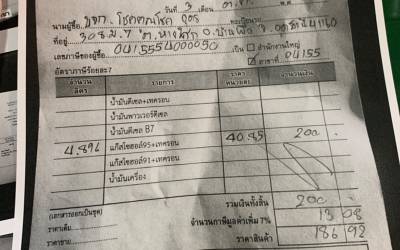 วันที่ 3 เดือน
นามผู้ซื้อ บจก. โชคอณโชค
ที่อยู่ 308 ม.7 41160
เลขภาษีของผู้ซื้อ 0415554000050 เป็น สำนักงานใหญ่
สาขาที่ 04155
อัตราภาษีร้อยละ 7
จำนวนลิตร รายการ ราคาหน่วยละ จำนวนเงิน
น้ำมันดีเซล+เทครอน
น้ำมันพาวเวอร์ดีเซล
น้ำมันดีเซล B7
4.896 แก๊สโซฮอล์95+เทครอน 40.85 200
แก๊สโซฮอล์91+เทครอน
น้ำมันเครื่อง
รวมเงินทั้งสิ้น 200
(เอกสารออกเป็นชุด) จำนวนภาษีมูลค่าเพิ่ม 7% 13 08
ราคาเต็ม ราคาสินค้า 186 92
ราคาขาย